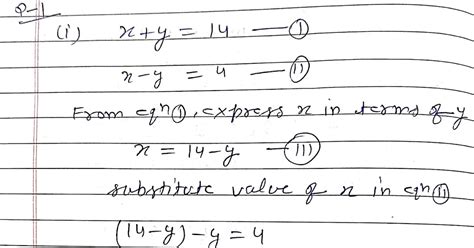 Q-1
(i) x+y = 14 — (I)
x-y = 4 — (II)
From eqn (I), express x in terms of y
x = 14-y — (III)
substitute value of x in eqn (II)
(14-y)-y = 4